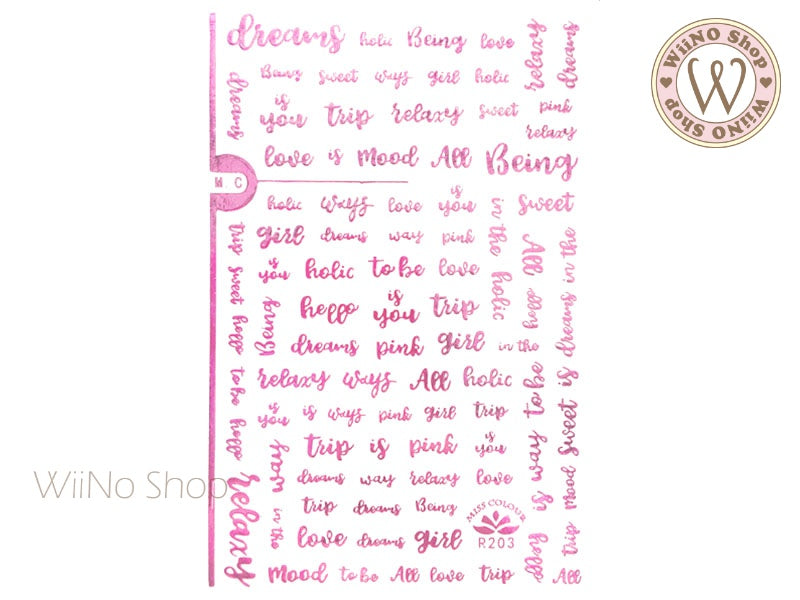 dreams holic Being love
Being sweet ways girl holic
is you trip relaxy sweet pink
relaxy
love is Mood All Being
relaxy
dreams
dreams
M.C
holic ways love is you sweet
girl dreams way pink
is you holic to be love
hello is you trip
dreams pink girl in the
relaxy ways All holic
is you is ways pink girl trip
trip is pink is you
dreams way relaxy love
trip dreams Being
love dreams girl
Mood to be All love trip
trip sweet hello to be hello
relaxy
Being
way
in the
in the holic
All hello
is way to be
hello
dreams in the
sweet is
trip Mood
All
MISS COLOUR
R203
WiiNO Shop
W
WiiNO Shop
WiiNo Shop